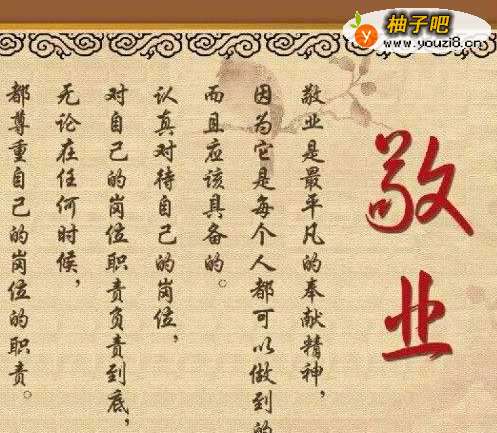 柚子吧
www.youzi8.cn
敬业
敬业是最平凡的奉献精神，
因为它是每个人都可以做到的
而且应该具备的。
认真对待自己的岗位，
对自己的岗位职责负责到底，
无论在任何时候，
都尊重自己的岗位的职责。